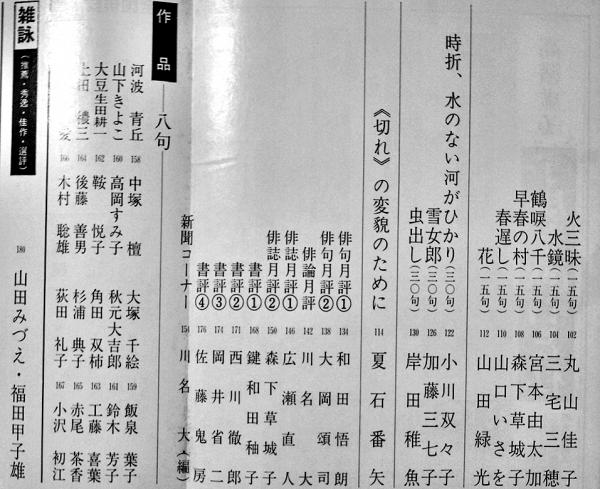 火三昧(一五句) 102 丸山佳子
水鏡(一五句) 104 三宅三穂
鶴唳八千(一五句) 106 宮本由太加
早春の村(一五句) 108 森下草城子
春遅し(一五句) 110 山口いさを
花(一五句) 112 山田緑光
時折、水のない河がひかり(三〇句) 122 小川双々子
雪女郎(三〇句) 126 加藤三七子
虫出し(三〇句) 130 岸田稚魚
《切れ》の変貌のために 114 夏石番矢
俳句月評① 134 和田悟朗
俳句月評② 138 大岡頌司
俳論月評 142 川名大
俳誌月評① 146 広瀬直人
俳誌月評② 150 森下草城子
書評① 168 鍵和田秞子
書評② 171 西川徹郎
書評③ 174 岡井省二
書評④ 176 佐藤鬼房
新聞コーナー 154 川名大(編)
作品――八句
河波青丘 158 中塚檀 大塚千絵 159 飯泉葉子
山下きよこ 160 高岡すみ子 秋元大吉郎 161 鈴木芳子
大豆生田耕一 162 鞍悦子 角田双柿 163 工藤喜葉
土田 三 164 後藤善男 杉浦典子 165 赤尾茶香
166 木村聡雄 荻田礼子 167 小沢初江
雑詠(推薦・秀逸・佳作・選評) 180 山田みづえ・福田甲子雄